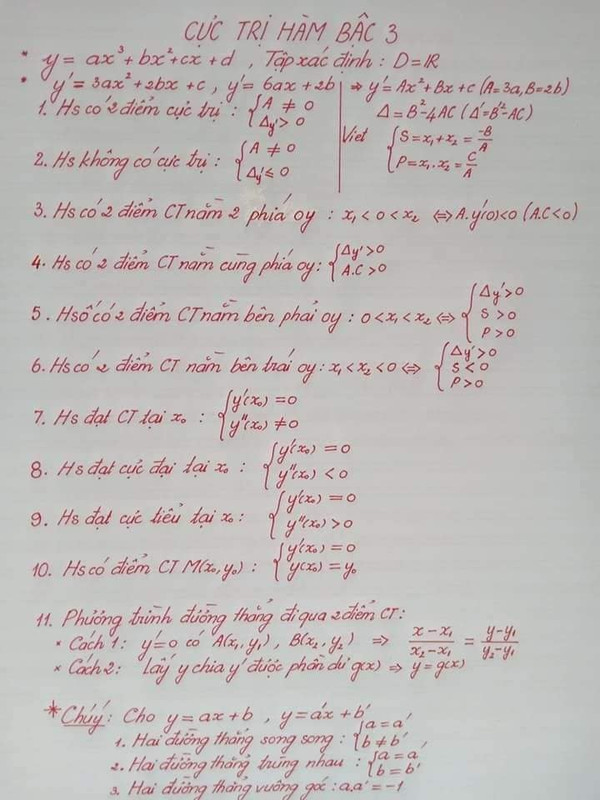 CỰC TRỊ HÀM BẬC 3
* y = ax³ + bx² + cx + d , Tập xác định : D = R
* y' = 3ax² + 2bx + c , y' = 6ax + 2b | ⇒ y' = Ax² + Bx + c (A = 3a, B = 2b)
1. Hs có 2 điểm cực trị : { A ≠ 0 | Δ = B² - 4AC (Δ' = B'² - AC)
Δy' > 0
Viet { S = x₁ + x₂ = -B/A
2. Hs không có cực trị : { A ≠ 0 | P = x₁.x₂ = C/A
Δy' ≤ 0
3. Hs có 2 điểm CT nằm 2 phiá oy : x₁ < 0 < x₂ ⇔ A.y'(0) < 0 (A.C < 0)
4. Hs có 2 điểm CT nằm cùng phiá oy : { Δy' > 0
A.C > 0
5. Hsố có 2 điểm CT nằm bên phải oy : 0 < x₁ < x₂ ⇔ { Δy' > 0
S > 0
P > 0
6. Hs có 2 điểm CT nằm bên trái oy : x₁ < x₂ < 0 ⇔ { Δy' > 0
S < 0
P > 0
7. Hs đạt CT tại x₀ : { y'(x₀) = 0
y''(x₀) ≠ 0
8. Hs đạt cực đại tại x₀ : { y'(x₀) = 0
y''(x₀) < 0
9. Hs đạt cực tiểu tại x₀ : { y'(x₀) = 0
y''(x₀) > 0
10. Hs có điểm CT M(x₀, y₀) : { y'(x₀) = 0
y(x₀) = y₀
11. Phương trình đường thẳng đi qua 2 điểm CT :
* Cách 1 : y' = 0 có A(x₁, y₁) , B(x₂, y₂) ⇒ x - x₁ / x₂ - x₁ = y - y₁ / y₂ - y₁
* Cách 2 : Lấy y chia y' được phần dư g(x) ⇒ y = g(x)
* Chú ý : Cho y = ax + b , y = a'x + b'
1. Hai đường thẳng song song : { a = a'
b ≠ b' ,
2. Hai đường thẳng trùng nhau : { a = a
b = b'
3. Hai đường thẳng vuông góc : a.a' = -1